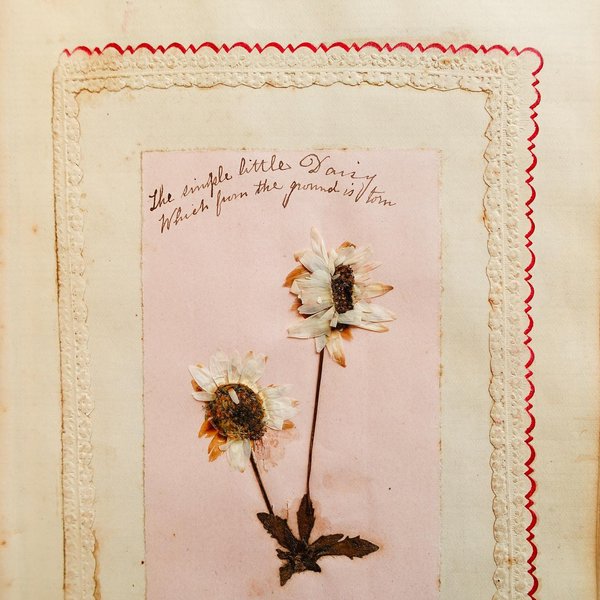 The simple little Daisy
Which from the ground is torn